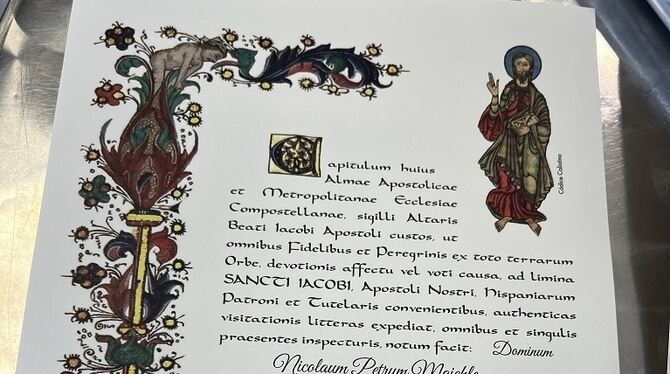 Capitulum huius
Almae Apostolicae
et Metropolitanae Ecclesiae
Compostellanae, sigilli Altaris
Beati Iacobi Apostoli custos, ut
omnibus Fidelibus et Peregrinis ex toto terrarum
Orbe, devotionis affectu vel voti causa, ad limina
SANCTI IACOBI, Apostoli Nostri, Hispaniarum
Patroni et Tutelaris convenientibus, authenticas
visitationis litteras expediat, omnibus et singulis
praesentes inspecturis, notum facit: Dominum
Nicolaum Petrum
Codice Calixtino